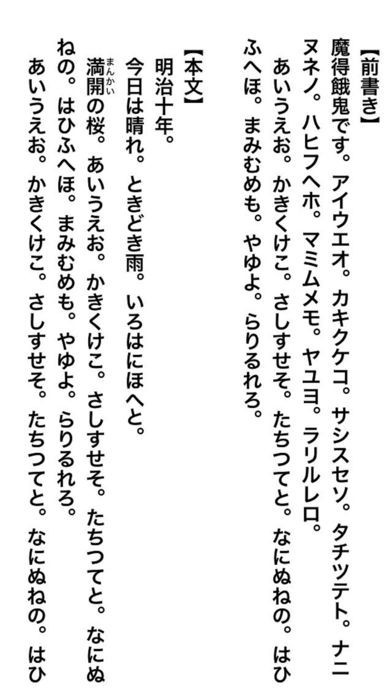 【前書き】
魔得餓鬼です。アイウエオ。カキクケコ。サシスセソ。タチツテト。ナニ
ヌネノ。ハヒフヘホ。マミムメモ。ヤユヨ。ラリルレロ。
　あいうえお。かきくけこ。さしすせそ。たちつてと。なにぬねの。はひ
ふへほ。まみむめも。やゆよ。らりるれろ。
【本文】
　明治十年。
　今日は晴れ。ときどき雨。いろはにほへと。
　満開まんかいの桜。あいうえお。かきくけこ。さしすせそ。たちつてと。なにぬ
ねの。はひふへほ。まみむめも。やゆよ。らりるれろ。
　あいうえお。かきくけこ。さしすせそ。たちつてと。なにぬねの。はひ